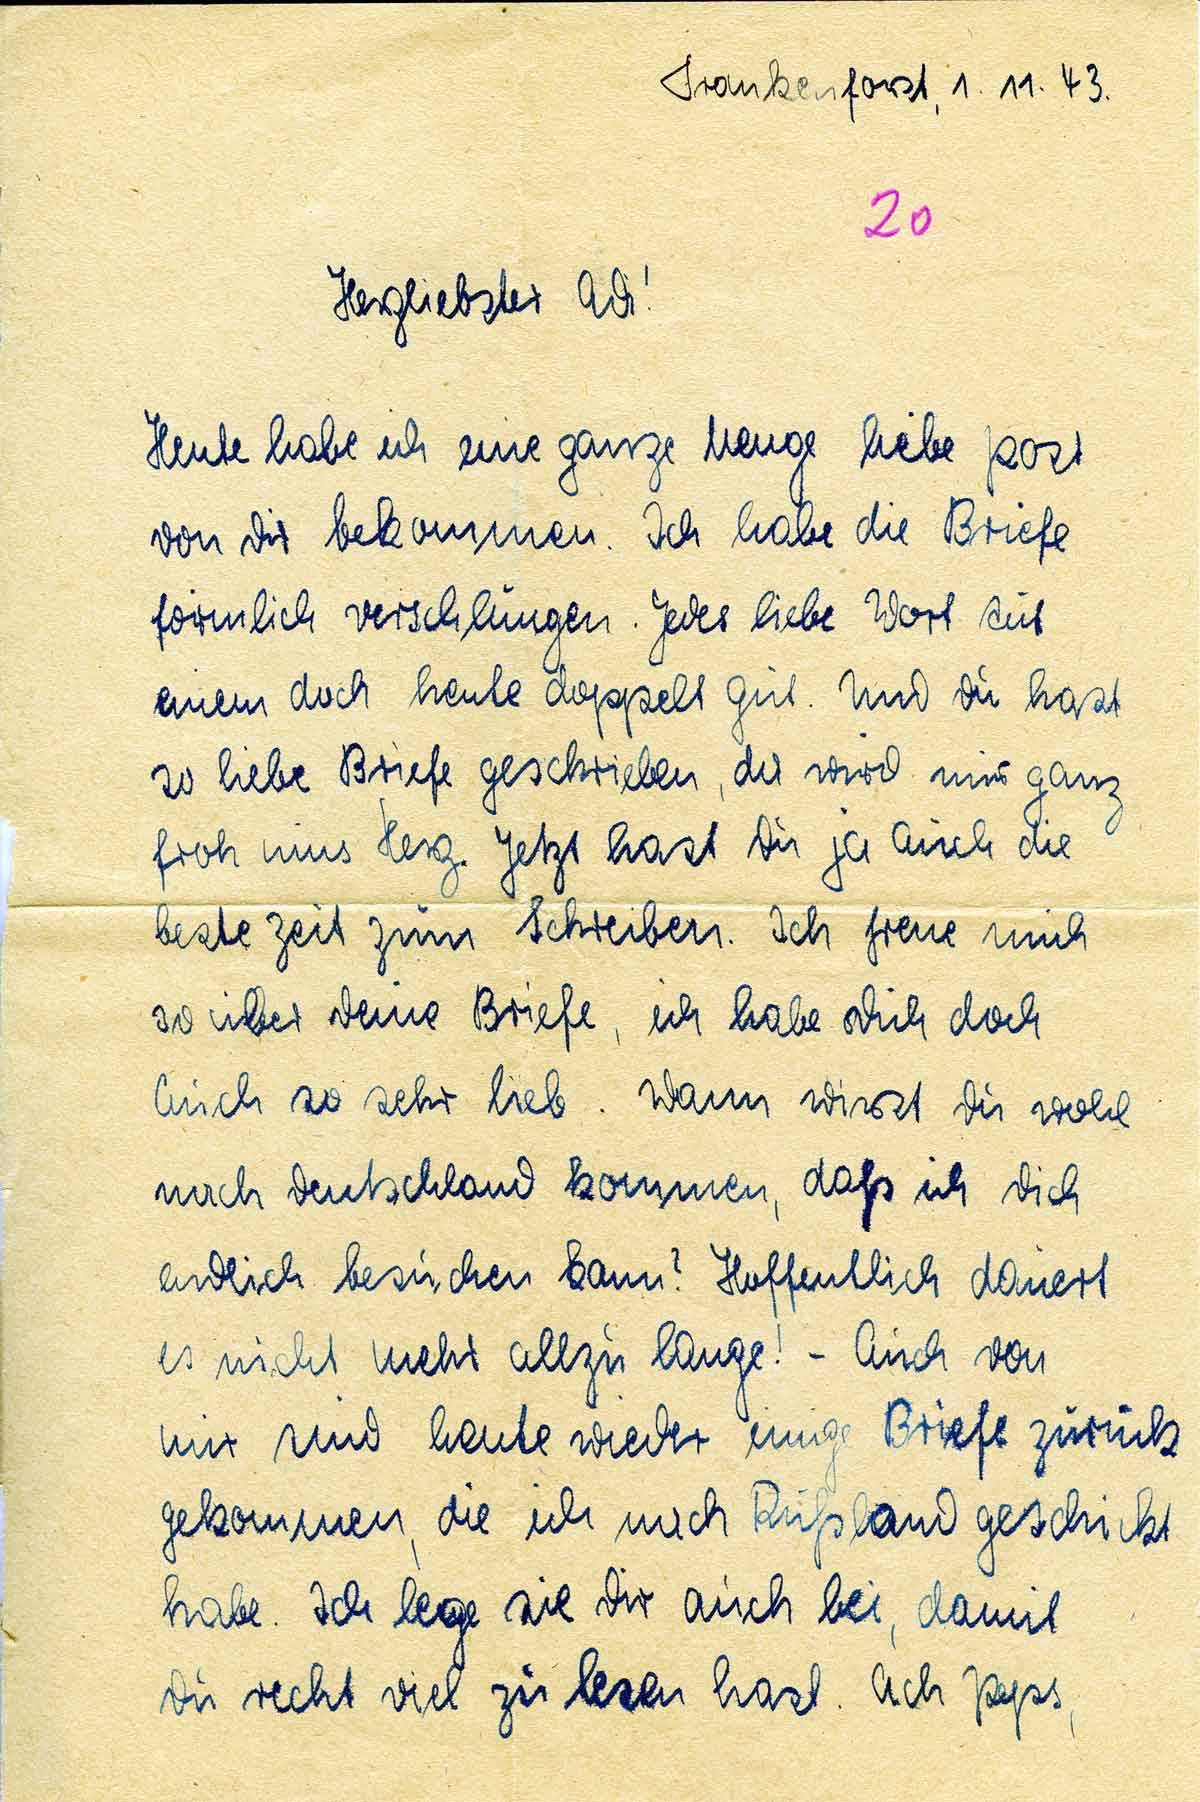 Frankenforst, 1. 11. 43.
20
Herzliebster Adi!
Heute habe ich eine ganze Menge liebe Post
von Dir bekommen. Ich habe die Briefe
förmlich verschlungen. Jedes liebe Wort tut
einem doch heute doppelt gut. Und Du hast
so liebe Briefe geschrieben, da wird mir ganz
froh ums Herz. Jetzt hast Du ja auch die
beste Zeit zum Schreiben. Ich freue mich
so über Deine Briefe, ich habe Dich doch
auch so sehr lieb. Wann wirst Du wohl
nach Deutschland kommen, daß ich Dich
endlich besuchen kann? Hoffentlich dauert
es nicht mehr allzu lange! - Auch von
mir sind heute wieder einige Briefe zurück
gekommen, die ich nach Rußland geschickt
habe. Ich lege sie Dir auch bei, damit
Du recht viel zu lesen hast. Ach Peps,